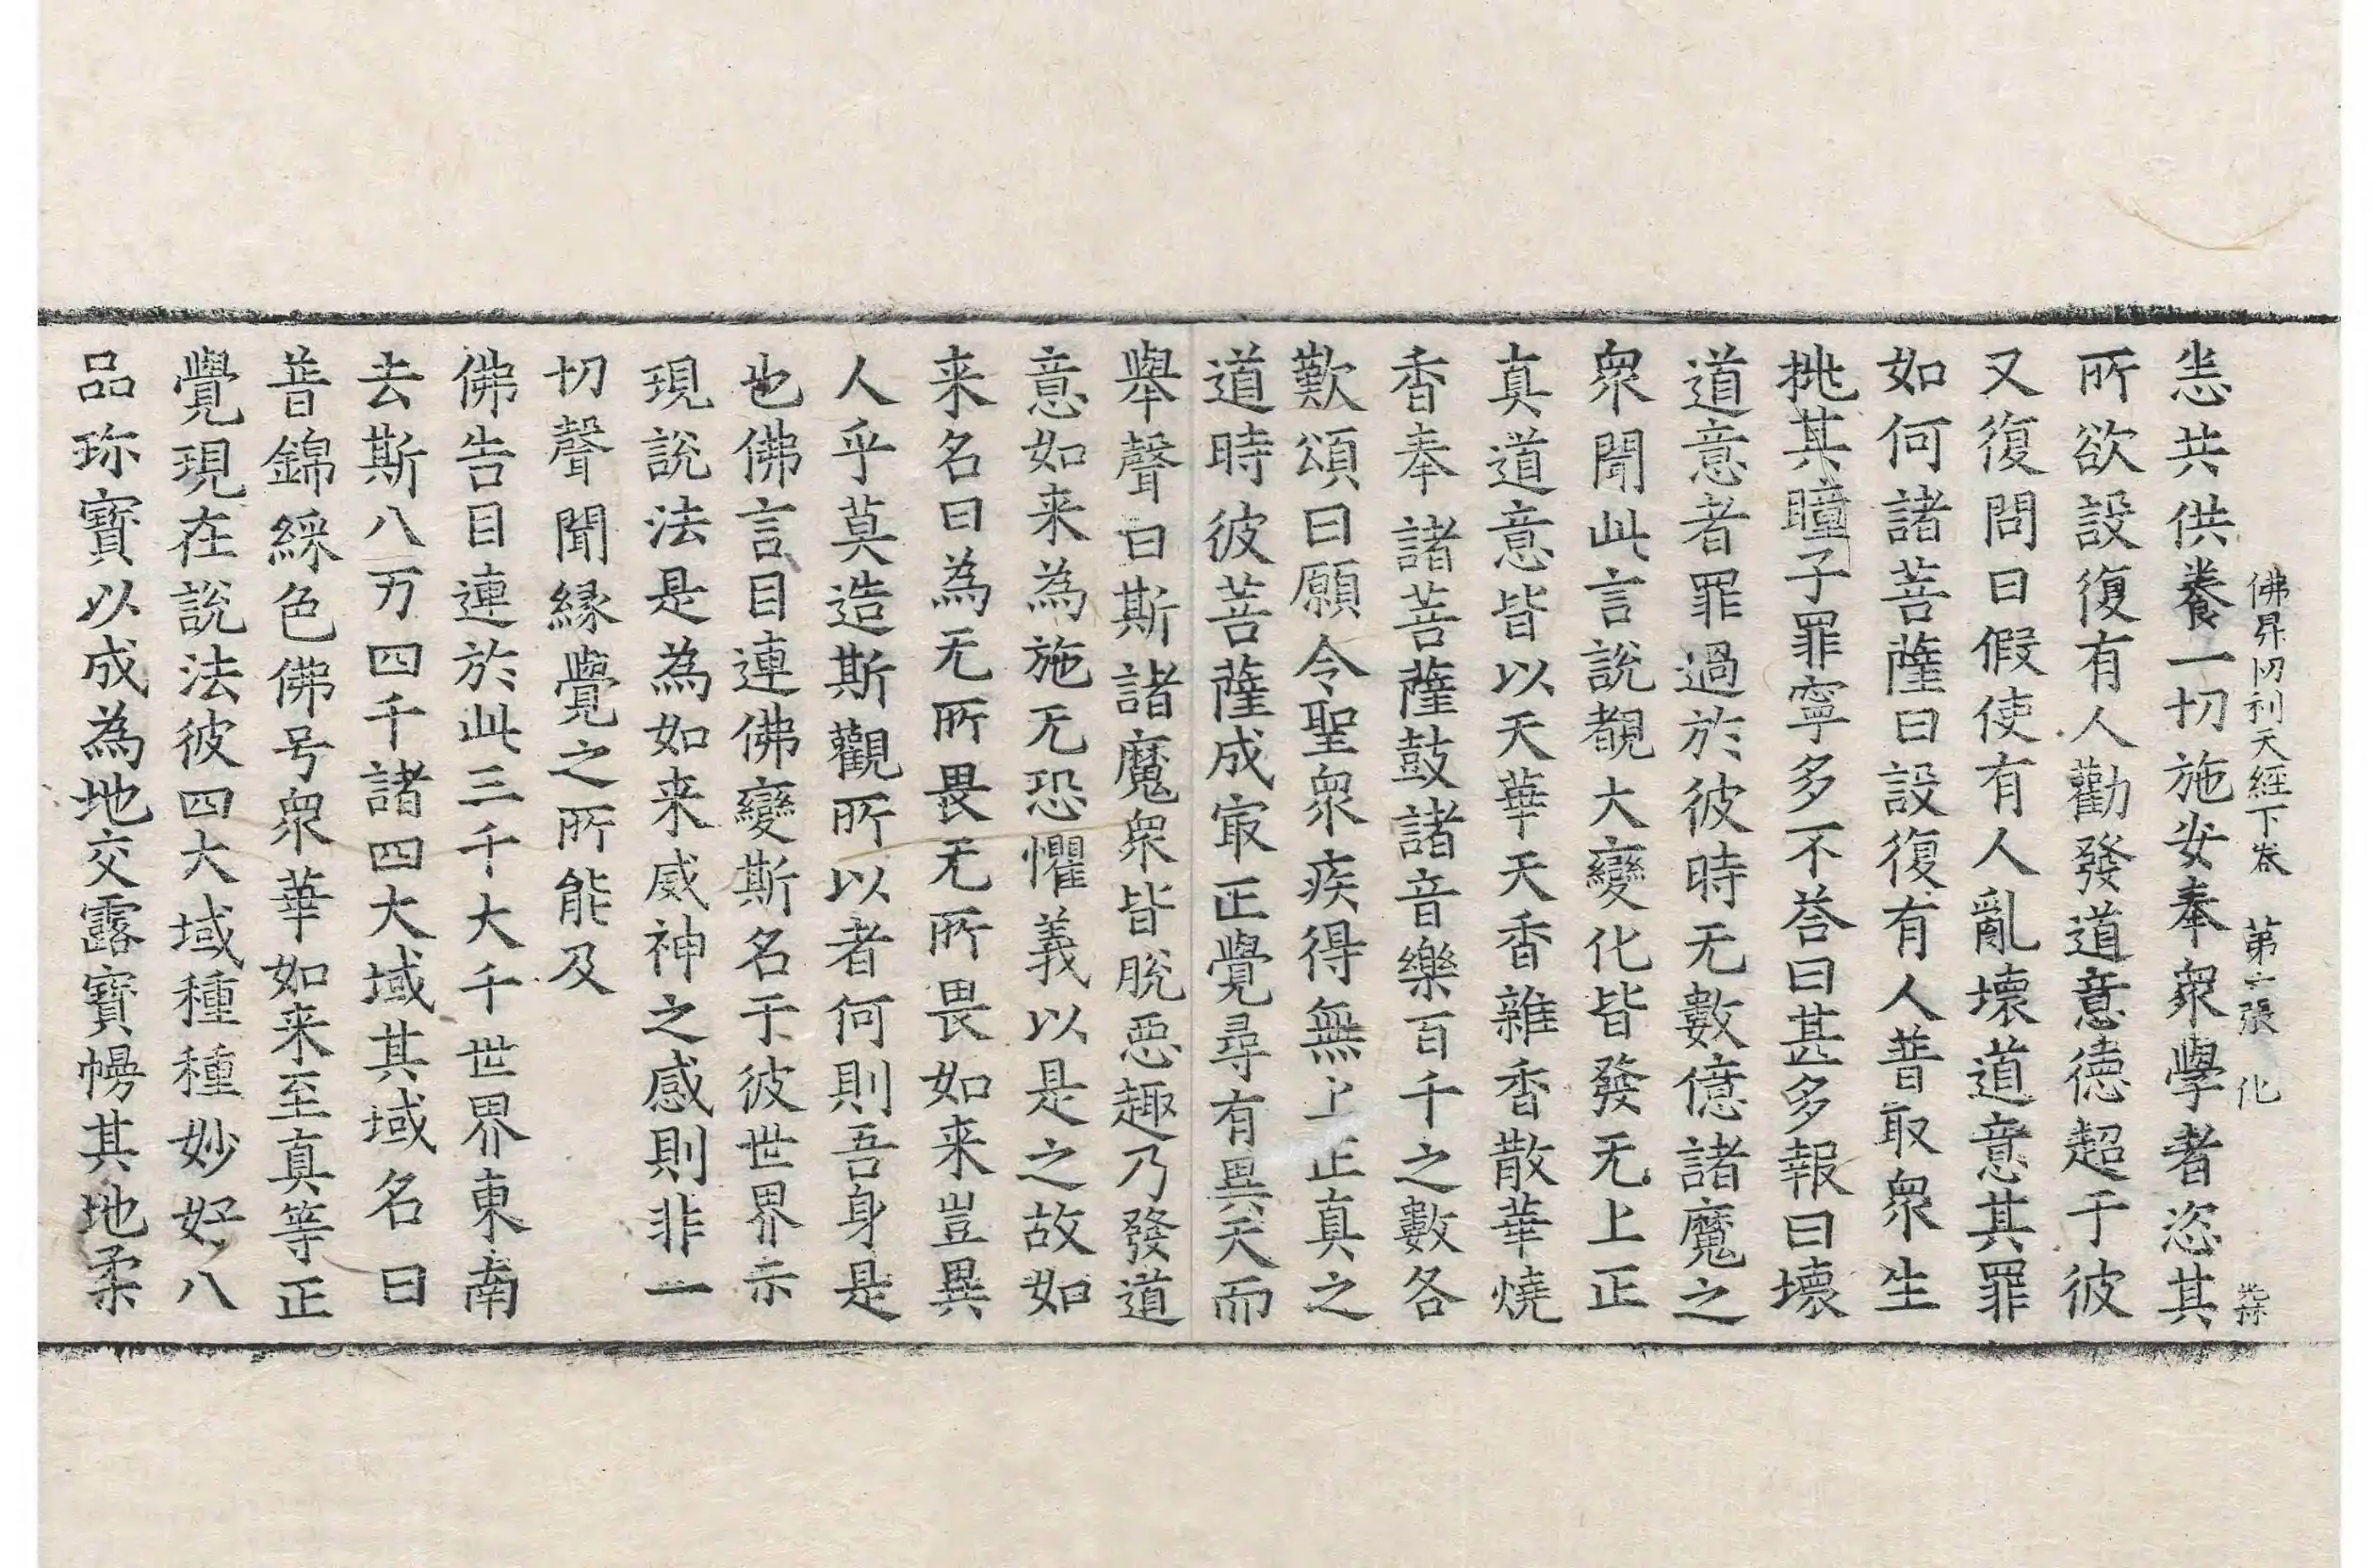 佛昇忉利天經下卷　第六張　化
恙共供養一切施安奉衆學者恣其
所欲設復有人勸發道意德超于彼
又復問曰假使有人亂壞道意其罪
如何諸菩薩曰設復有人普取衆生
挑其瞳子罪寧多不荅曰甚多報曰壞
道意者罪過於彼時无數億諸魔之
衆聞此言說覩大變化皆發无上正
真道意皆以天華天香雜香散華燒
香奉諸菩薩鼓諸音樂百千之數各
歎頌曰願令聖衆疾得無上正真之
道時彼菩薩成㝡正覺尋有異天而
舉聲曰斯諸魔衆皆脫惡趣乃發道
意如来為施无恐懼義以是之故如
来名曰為无所畏无所畏如来豈異
人乎莫造斯觀所以者何則吾身是
也佛言目連佛變斯名于彼世界示
現說法是為如来威神之感則非一
切聲聞緣覺之所能及
佛告目連於此三千大千世界東南
去斯八万四千諸四大域其域名曰
普錦綵色佛号衆華如来至真等正
覺現在說法彼四大域種種妙好八
品珎寶以成為地交露寶幔其地柔